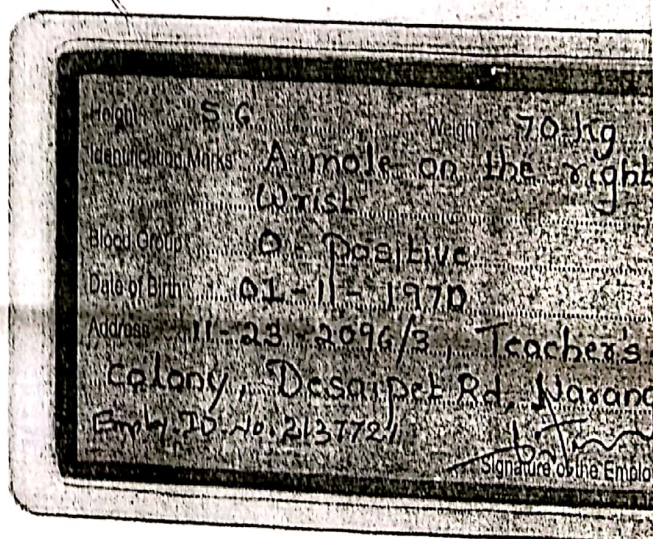 Height 5 6 Weight 70 Kg
Identification Marks A mole on the right
Wrist
Blood Group O - Positive
Date of Birth 01-11-1970
Address 11-23-2096/3, Teacher's
colony, Desaipet Rd,
Emply. ID No. 2137721
Signature of the Emplo